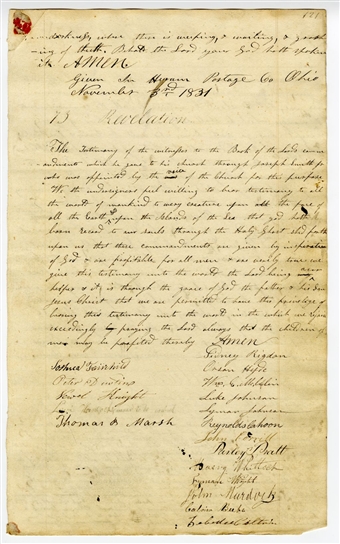 121
darkness, where there is weeping, & wailing, & gnash
ing of teeth, Behold the Lord your God hath spoken
it AMEN
Given in Hyrum Postage Co Ohio
November 3rd 1831
73 Revelation
The Testimony of the witnesses to the Book of the Lords comma
ndments which he gave to his church through Joseph Smith Jr
who was appointed by the voice of the Church for this purpose
We the undersigners feel willing to bear testimony to all
the world of mankind to every creature upon all the face of
all the Earth upon the Islands of the Sea that god hath
born record to our souls through the Holy Ghost shed forth
upon us that these commandments are given by inspiration
of God & are profitable for all men & are verily true we
give this testimony unto the world the Lord being my
helper & it is through the grace of God the father & his Son
Jesus Christ that we are permitted to have this privelege of
bearing this testimony unto the world in the which we rejoice
exceedingly praying the Lord always that the children of
men may be profited thereby AMEN
Sidney Rigdon
Joshua Fairchild Orson Hyde
Peter Dustin Wm. E. McLelin
Newel Knight Luke Johnson
Lyman Johnson
Thomas B Marsh Reynolds Cahoon
John Corrill
Parley Pratt
Harvey Whitlock
Lyman Wight
John Murdock
Calvin Beebe
Zebedee Coltrin